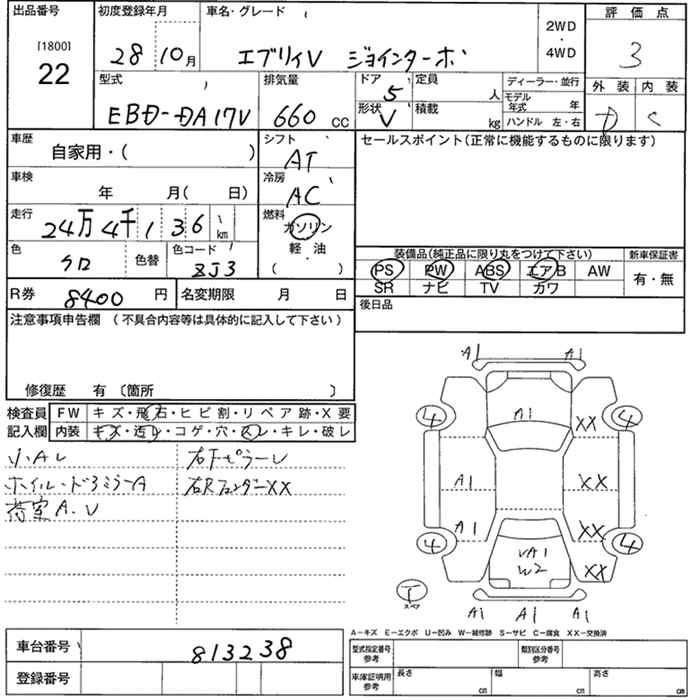 出品番号
[1800]
22
初度登録年月
28 10月
車名・グレード
エブリィV ジョインターボ
2WD
・
4WD
評価点
3
外装 内装
D C
型式
EBD-DA17V
排気量
660 CC
ドア
5
形状
V
定員
人
積載
kg
ディーラー・並行
モデル年式 年
ハンドル 左・右
車歴
自家用・( )
シフト
AT
セールスポイント(正常に機能するものに限ります)
車検
年 月( 日)
冷房
AC
走行
24万4千136 km
燃料
ガソリン
軽・油
( )
色
クロ
色替
色コード
ZJ3
装備品(純正品に限り丸をつけて下さい)
新車保証書
PS PW ABS エアB AW
SR ナビ TV カワ
有・無
R券
8400 円
名変期限 月 日
後日品
注意事項申告欄 (不具合内容等は具体的に記入して下さい)
修復歴 有 〔箇所 〕
検査員
記入欄
FW キズ・飛石・ヒビ割・リペア跡・X要
内装 キズ・汚レ・コゲ・穴・スレ・キレ・破レ
小AU
ホイル・ドアミラーA
荷室A.U
右FピラーU
右RフェンダーXX
A1 A1
4 A1 XX 4
A1 XX
A1 XX
4 UA1 4
W2 XX
T
スペア
A1 A1 A1
A-キズ E-エクボ U-凹み W-補修跡 S-サビ C-腐食 XX-交換済
車台番号
813238
登録番号
型式指定番号
参考
類別区分番号
参考
車庫証明用
参考
長さ cm
幅 cm
高さ cm